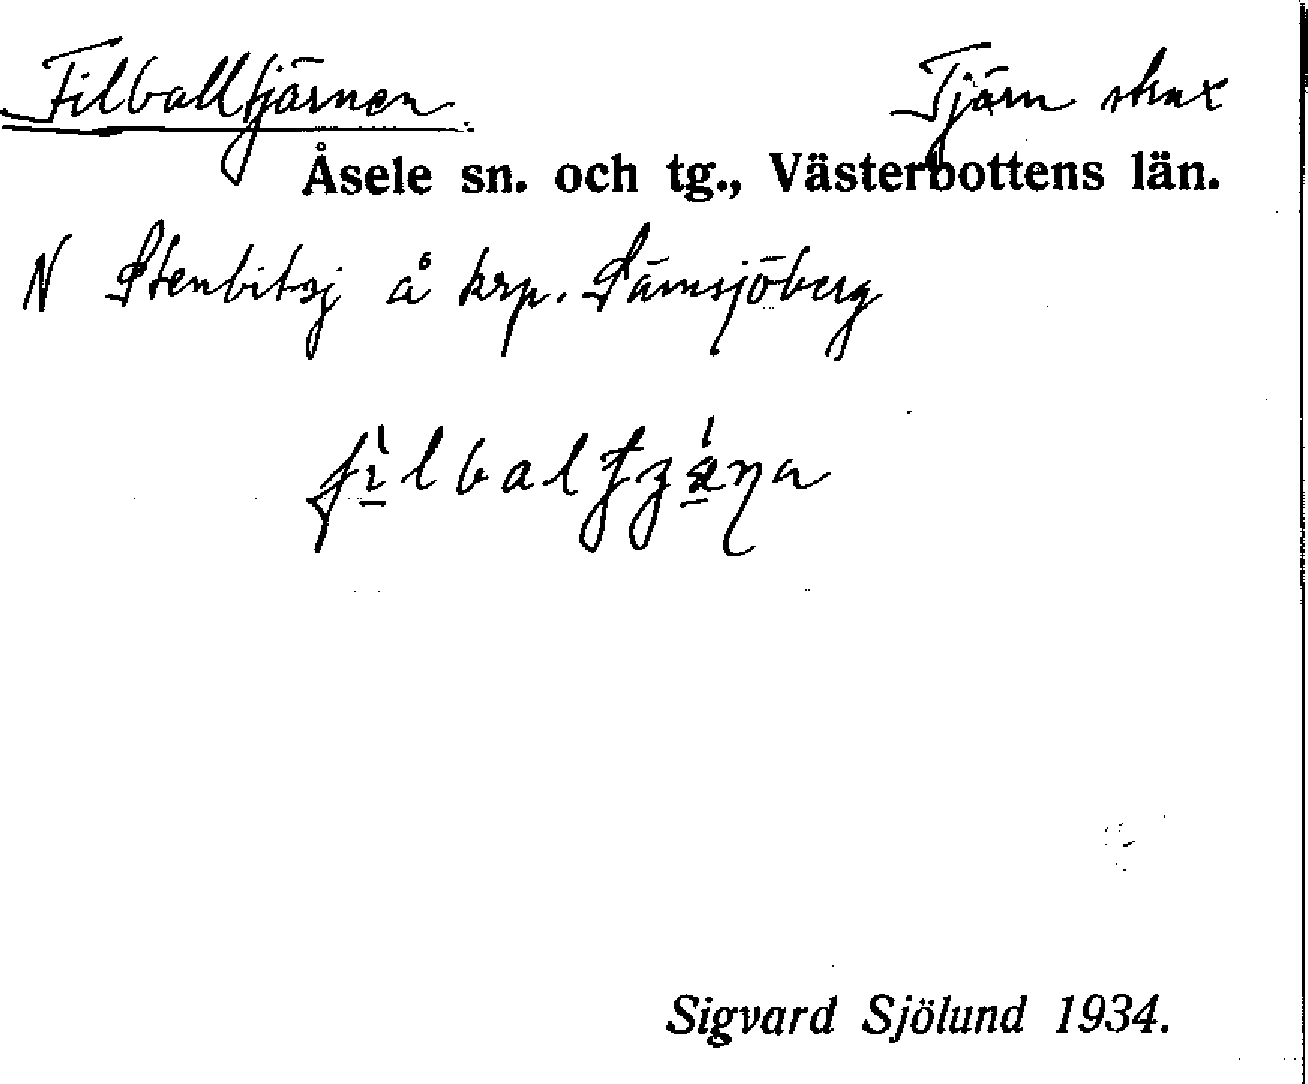 Filballtjärnen Tjärn strax
Åsele sn. och tg., Västerbottens län.
N Stenbitsj å krp. Sämsjöberg
Sigvard Sjölund 1934.